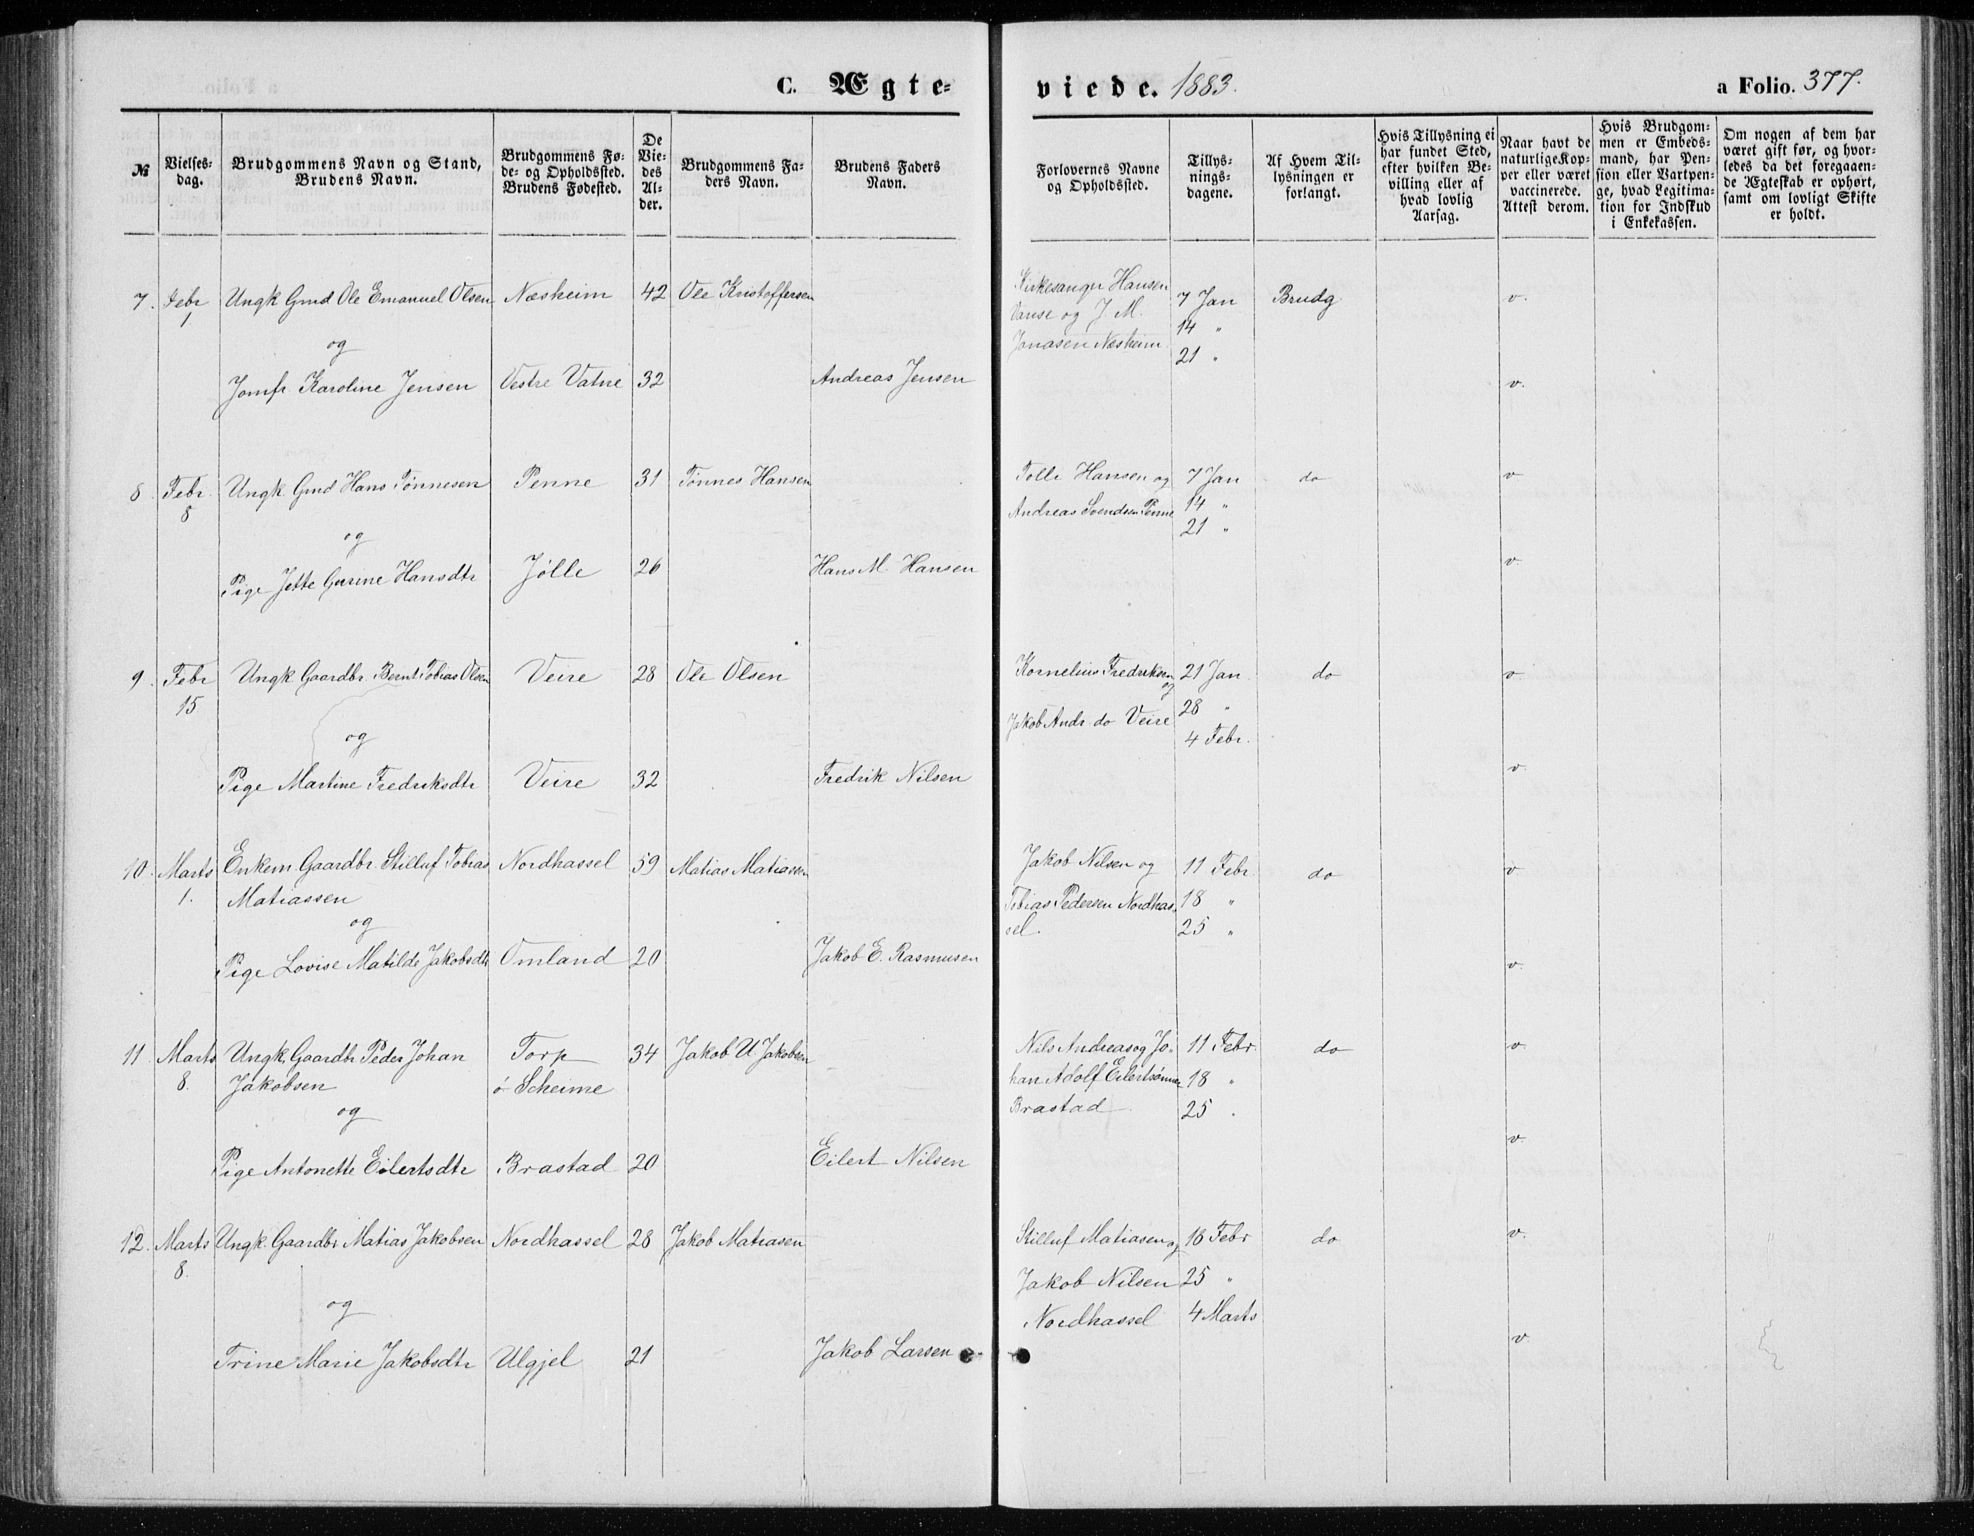 C. Ægte-
viede. 1883.
a Folio. 377.
№
Vielses-
dag.
Brudgommens Navn og Stand,
Brudens Navn.
Brudgommens Fø-
de- og Opholdssted.
Brudens Fødested.
De
Vie-
des
Al-
der.
Brudgommens Fa-
ders Navn.
Brudens Faders
Navn.
Forlovernes Navne
og Opholdssted.
Tillys-
nings-
dagene.
Af Hvem Til-
lysningen er
forlangt.
Hvis Tillysning ei
har fundet Sted,
efter hvilken Be-
villing eller af
hvad lovlig
Aarsag.
Naar havt de
naturlige Kop-
per eller været
vaccinerede.
Attest derom.
Hvis Brudgom-
men er Embeds-
mand, har Pen-
sion eller Vartpen-
ge, hvad Legitima-
tion for Indskud
i Enkekassen.
Om nogen af dem har
været gift før, og hvor-
ledes da det foregaaen-
de Ægteskab er ophørt,
samt om lovligt Skifte
er holdt.
7. Febr Ungk Gmd Ole Emanuel Olsen Næsheim 42 Ole Kristoffersen Kirkesanger Hansen 7 Jan Brudg v.
1 Vanse og J. M. 14 "
og Jonasen Næsheim 21 "
Jomfr. Karoline Jensen Vestre Vatne 32 Andreas Jensen v.
8. Febr. Ungk Gmd Hans Tönnesen Penne 31 Tönnes Hansen Tolle Hansen og 7 Jan do v
8 Andreas Svendsen Penne 14 "
og 21 "
Pige Jette Gurine Hansdtr Jølle 26 Hans M. Hansen v.
9. Febr Ungk Gaardbr. Bernt Tobias Olsen Veire 28 Ole Olsen Kornelius Fredriksen 21 Jan. do v.
15 og
Jakob Andr. do Veire 28 "
og 4 Febr.
Pige Martine Fredriksdtr Veire 32 Fredrik Nilsen v.
10. Marts Enkem. Gaardbr. Stilluf Tobias Nordhassel 59 Matias Matiassen Jakob Nilsen og 11 Febr. do v
1. Matiassen Tobias Pedersen Nordhas- 18 "
og sel. 25 "
Pige Lovise Matilde Jakobsdtr Omland 20 Jakob E. Rasmusen v.
11. Marts Ungk. Gaardbr Peder Johan Torp 34 Jakob U. Jakobsen Nils Andreas og Jo- 11 Febr. do v.
8. Jakobsen ö. Scheime han Adolf Eilertsönner 18 "
og Brastad 25 "
Pige Antonette Eilertsdtr Brastad 20 Eilert Nilsen v.
12. Marts Ungk. Gaardbr Matias Jakobsen Nordhassel 28 Jakob Matiasen Stilluf Matiasen og 18 Febr do v.
8. Jakob Nilsen 25 "
og Nordhassel 4 Marts
Trine Marie Jakobsdtr Ulgjel 21 Jakob Larsen v.